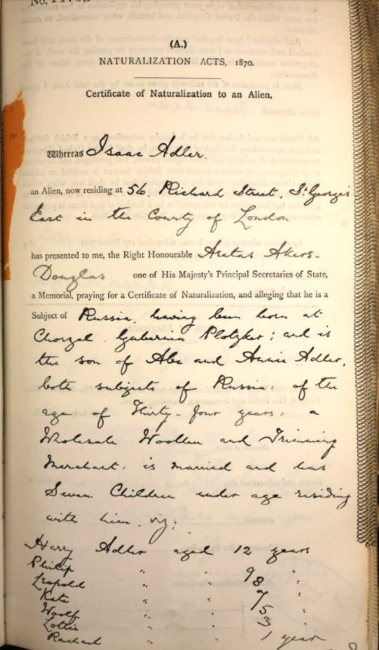 (A.)
NATURALIZATION ACTS, 1870.
Certificate of Naturalization to an Alien.
Whereas Isaac Adler,
an Alien, now residing at 56, Richard Street, St. George's
East in the County of London
has presented to me, the Right Honourable Aretas Akers-
Douglas one of His Majesty's Principal Secretaries of State,
a Memorial, praying for a Certificate of Naturalization, and alleging that he is a
Subject of Russia, having been born at
Chorzel, Gubernia Plotzker; and is
the son of Abe and Annie Adler,
both subjects of Russia: of the
age of Thirty-four years, a
Wholesale Woollen and Trimming
Merchant, is married and has
Seven Children under age residing
with him, viz:
Harry Adler aged 12 years
Philip " " 9 "
Leopold " " 8 "
Kate " " 7 "
Woolf " " 5 "
Lottie " " 3 "
Rachael " " 1 year